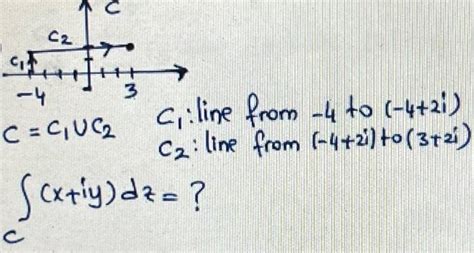 C
C2
C1
-4 3
C = C1 U C2
C1: line from -4 to (-4+2i)
C2: line from (-4+2i) to (3+2i)
∫C (x+iy) dz = ?